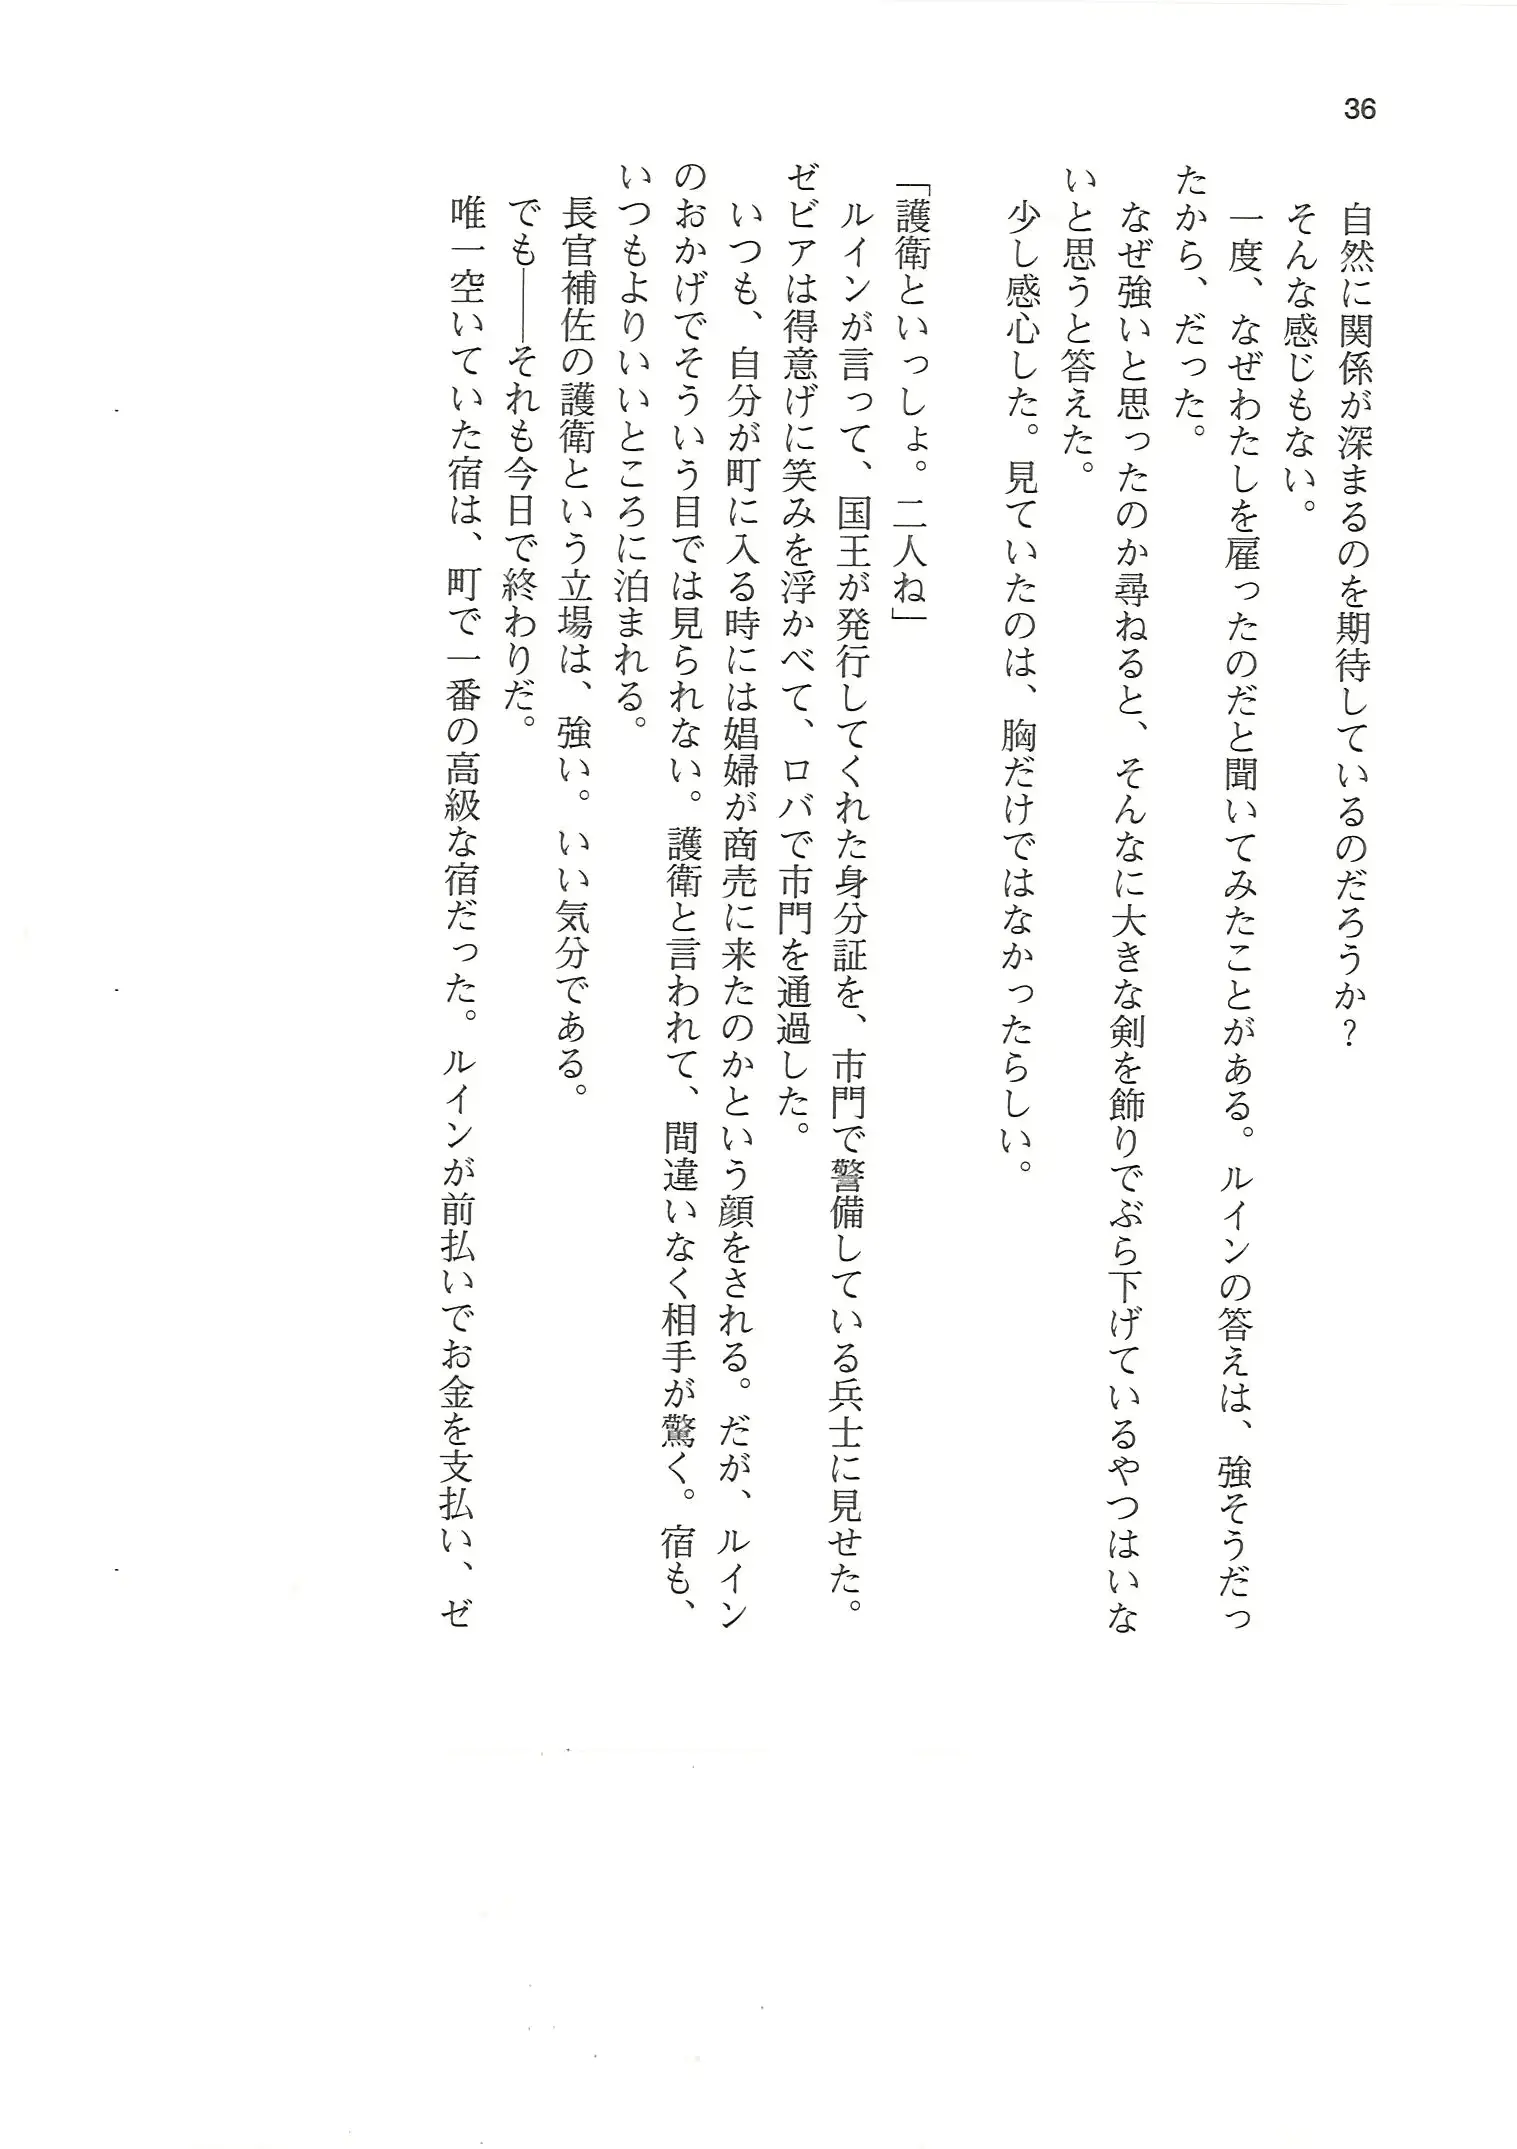 36
自然に関係が深まるのを期待しているのだろうか？
そんな感じもない。
一度、なぜわたしを雇ったのだと聞いてみたことがある。ルインの答えは、強そうだっ
たから、だった。
なぜ強いと思ったのか尋ねると、そんなに大きな剣を飾りでぶら下げているやつはいな
いと思うと答えた。
少し感心した。見ていたのは、胸だけではなかったらしい。
「護衛といっしょ。二人ね」
ルインが言って、国王が発行してくれた身分証を、市門で警備している兵士に見せた。
ゼビアは得意げに笑みを浮かべて、ロバで市門を通過した。
いつも、自分が町に入る時には娼婦が商売に来たのかという顔をされる。だが、ルイン
のおかげでそういう目では見られない。護衛と言われて、間違いなく相手が驚く。宿も、
いつもよりいいところに泊まれる。
長官補佐の護衛という立場は、強い。いい気分である。
でも――それも今日で終わりだ。
唯一空いていた宿は、町で一番の高級な宿だった。ルインが前払いでお金を支払い、ゼ